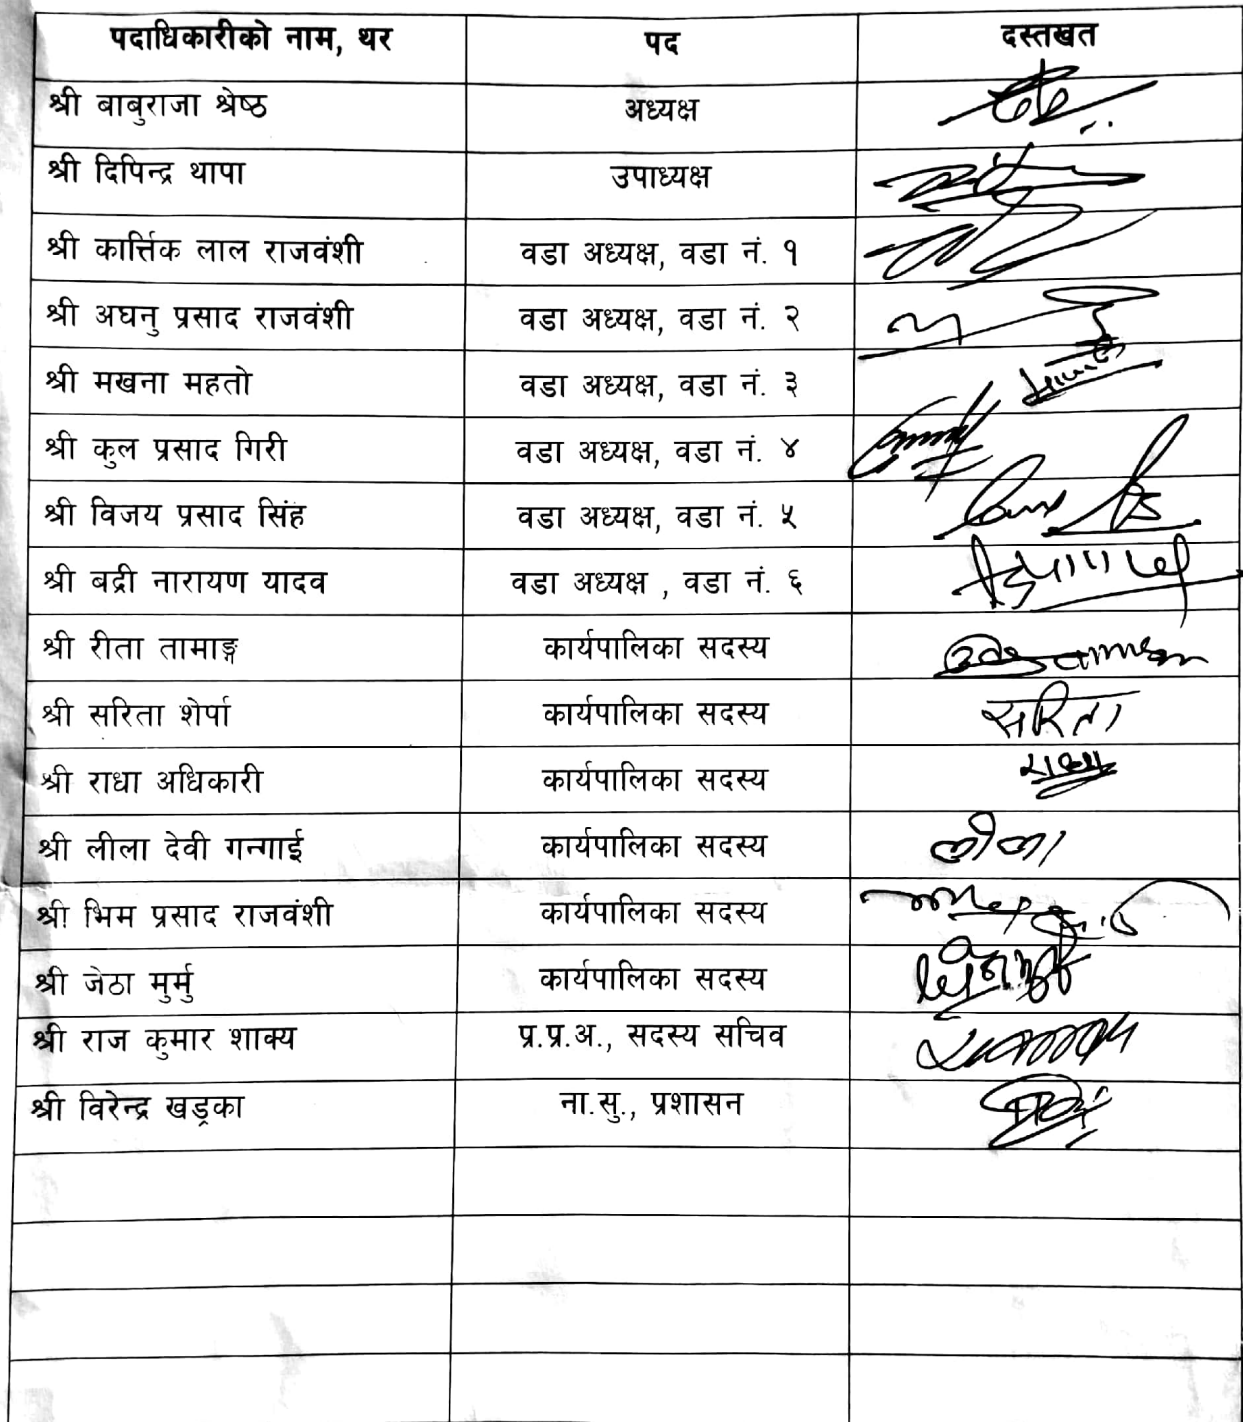 पदाधिकारीको नाम, थर पद दस्तखत
श्री बाबुराजा श्रेष्ठ अध्यक्ष
श्री दिपिन्द्र थापा उपाध्यक्ष
श्री कार्त्तिक लाल राजवंशी वडा अध्यक्ष, वडा नं. १
श्री अघनु प्रसाद राजवंशी वडा अध्यक्ष, वडा नं. २
श्री मखना महतो वडा अध्यक्ष, वडा नं. ३
श्री कुल प्रसाद गिरी वडा अध्यक्ष, वडा नं. ४
श्री विजय प्रसाद सिंह वडा अध्यक्ष, वडा नं. ५
श्री बद्री नारायण यादव वडा अध्यक्ष , वडा नं. ६
श्री रीता तामाङ्ग कार्यपालिका सदस्य
श्री सरिता शेर्पा कार्यपालिका सदस्य सरिता
श्री राधा अधिकारी कार्यपालिका सदस्य
श्री लीला देवी गन्गाई कार्यपालिका सदस्य लीला
श्री भिम प्रसाद राजवंशी कार्यपालिका सदस्य
श्री जेठा मुर्मु कार्यपालिका सदस्य
श्री राज कुमार शाक्य प्र.प्र.अ., सदस्य सचिव
श्री विरेन्द्र खड्का ना.सु., प्रशासन